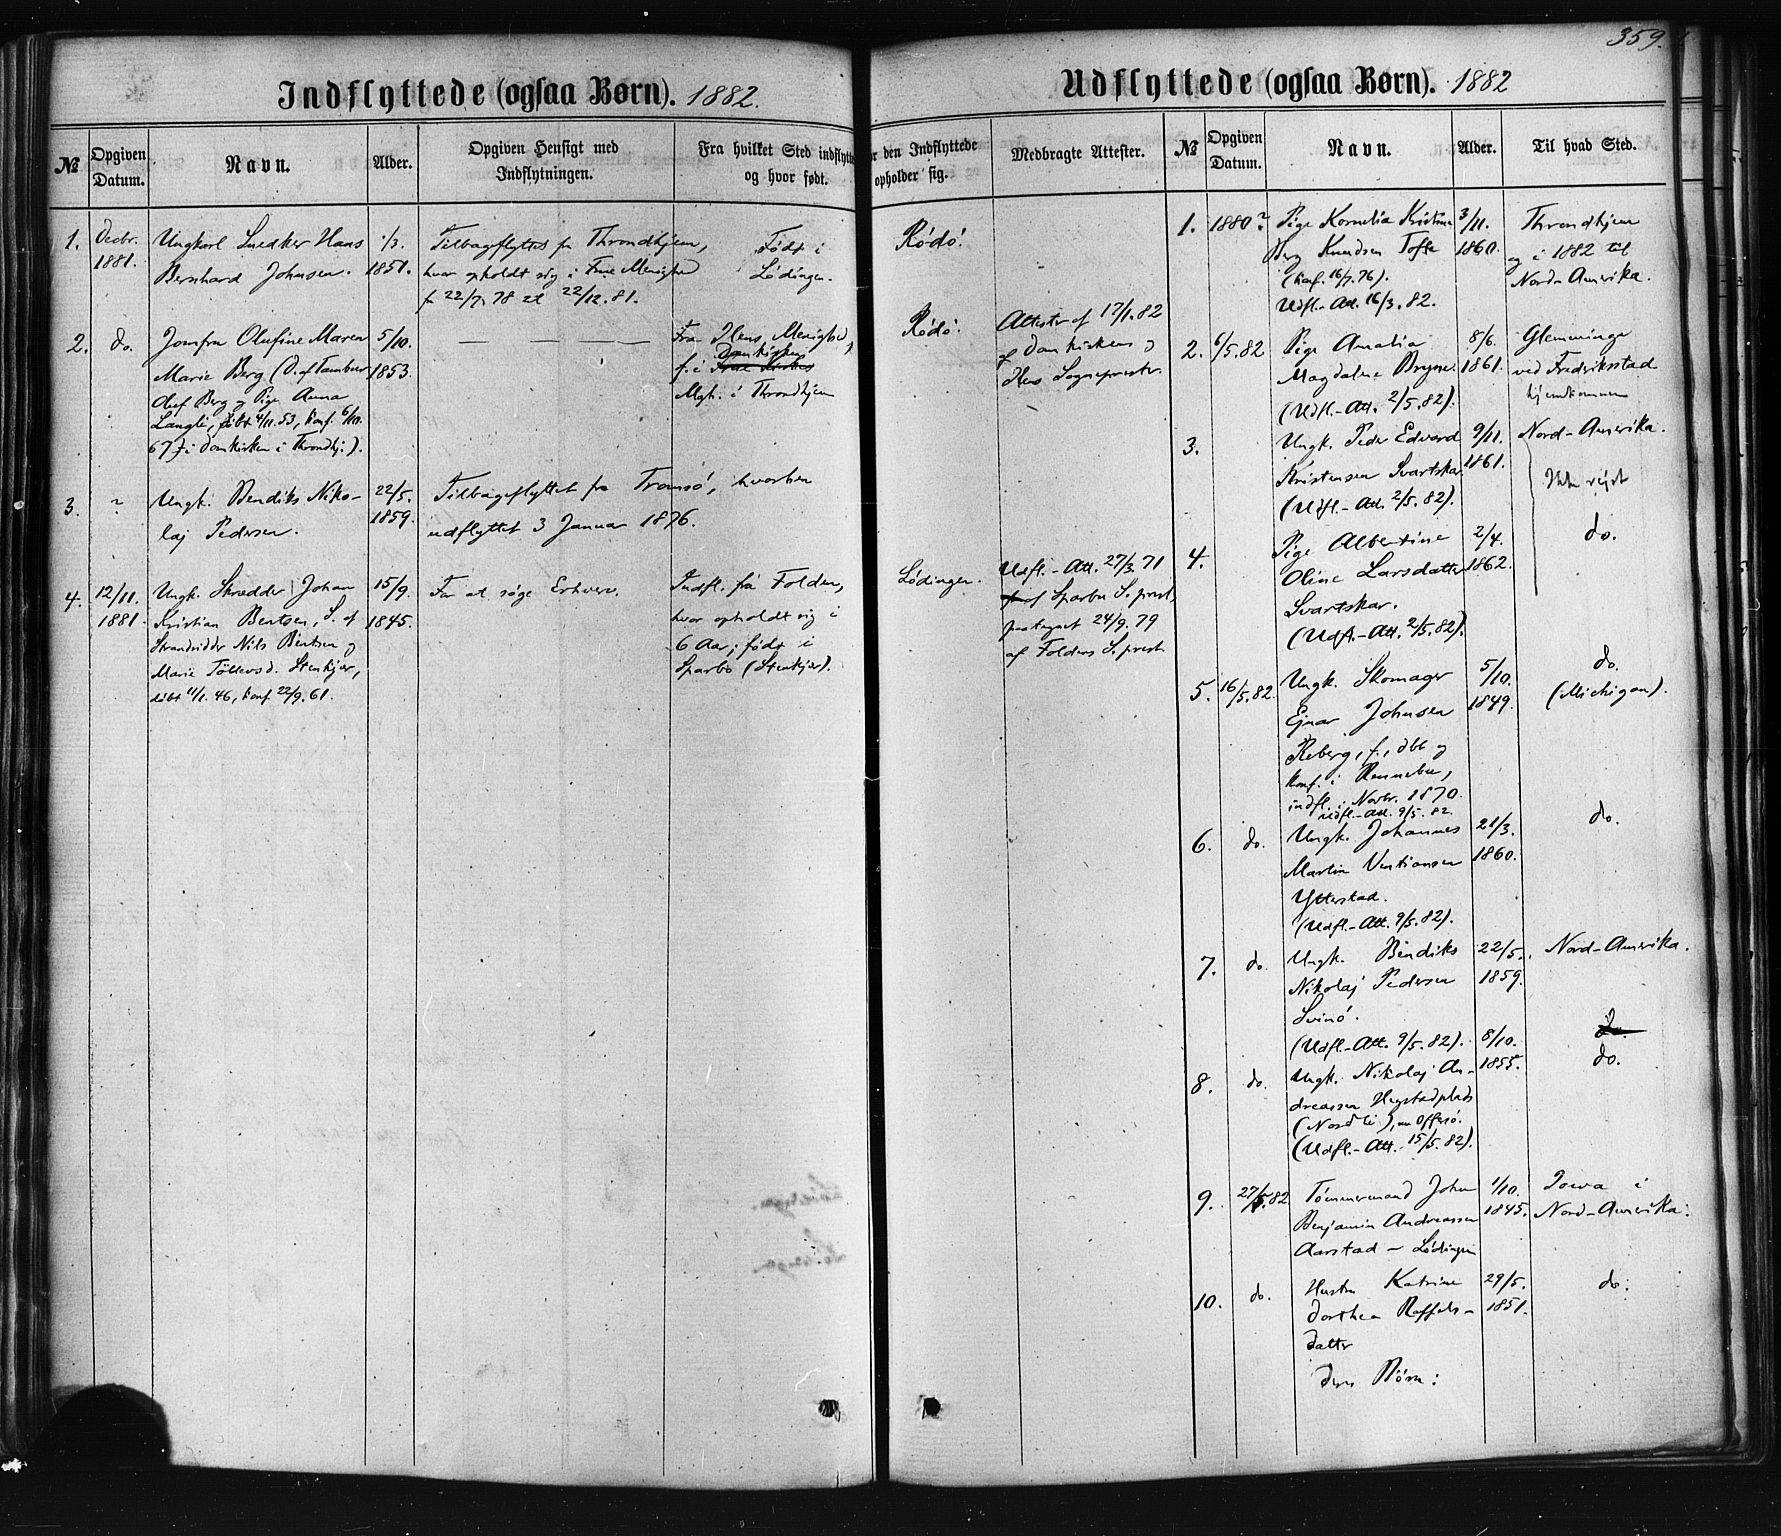 359.
Indflyttede (ogsaa Børn). 1882.
№
Opgiven Datum.
Navn.
Alder.
Opgiven Hensigt med Indflytningen.
Fra hvilket Sted indflytte
og hvor født.
or den Indflyttede
opholder sig.
Medbragte Attester.
1. Decbr. 1881.
Ungkarl Snedker Hans
Bernhard Johnsen.
1/3. 1851.
Tilbageflyttet fr Throndhjem,
hvor opholdt sig i Frue Menighed
fr 22/7.78 til 22/12.81.
Født i
Lødingen.
Rødø.
2. do.
Jomfru Olufine Maren
Marie Berg (D. af Tambur
Oluf Berg og Pige Anna
Langli, døbt 4/11.53, konf. 6/10.
67 i Domkirken i Throndhj.).
5/10. 1853.
— — —
Fra Ilens Menighed,
f. i Domkirkens
Mgh. i Throndhjem
Rødø.
Attester af 17/1.82
af Domkirkens og
Ilens Sogneprester.
3. ?
Ungk. Bendiks Niko-
laj Pedersen.
22/5. 1859.
Tilbageflyttet fra Tromsø, hvorhen
udflyttet 3 Januar 1876.
4. 12/11. 1881.
Ungk. Skrædder Johan
Kristian Bertsen, S. af
Strandsidder Nils Bentsen og
Marie Tollevsd. Stenkjer,
døbt 11/1.46, konf. 22/9.61.
15/9. 1845.
For at søge Erhverv.
Indfl. fra Folden,
hvor opholdt sig i
6 Aar; født i
Sparbo (Stenkjer).
Lødingen.
Udfl.-Att. 27/3.71
af Sparbu S.prest,
paategnet 24/9.79
af Foldens S.prest
Udflyttede (ogsaa Børn). 1882
№
Opgiven Datum.
Navn.
Alder.
Til hvad Sted.
1. 1880?
Pige Kornelia Kristine
Berg Knudsen Tofte
(konf. 16/7.76).
Udfl.-Att. 16/3.82.
3/11. 1860.
Throndhjem
og i 1882 til
Nord-Amerika.
2. 6/5.82
Pige Amalia
Magdalene Bryne.
(Udfl.-Att. 2/5.82).
8/6. 1861.
Glemminge
ved Fredriksstad
hjemkommen
3.
Ungk. Peder Edvard
Kristensen Svartskar
(Udfl.-Att. 2/5.82).
9/11. 1861.
Nord-Amerika.
Ikke rejst
4.
Pige Albertine
Oline Larsdatter
Svartskar.
(Udfl.-Att. 2/5.82).
2/4. 1862.
do.
5. 16/5.82.
Ungk. Skomager
Ejnar Johnsen
Reberg, f., dbt og
konf. i Rennebu,
indfl. i Novbr. 1870.
Udfl.-Att. 9/5.82.
5/10. 1849.
do.
(Michigan).
6. do.
Ungk. Johannes
Martin Ventiansen
Ytterstad.
(Udfl.-Att. 9/5.82).
21/3. 1860.
do.
7. do.
Ungk. Bendiks
Nikolaj Pedersen
Svinø.
(Udfl.-Att. 9/5.82).
22/5. 1859.
Nord-Amerika.
do.
8. do.
Ungk. Nikolaj An-
dreassen Hegstadplads
(Nordli), nu Offersø.
(Udfl.-Att. 15/5.82).
8/10. 1855.
do.
9. 27/5.82
Tømmermand John
Benjamin Andreassen
Aarstad – Lødingen
1/10. 1845.
Iowa i
Nord-Amerika.
10. do.
Hustru Katrine
Dorthea Roffels-
datter
29/5. 1851.
do.
Deres Børn: